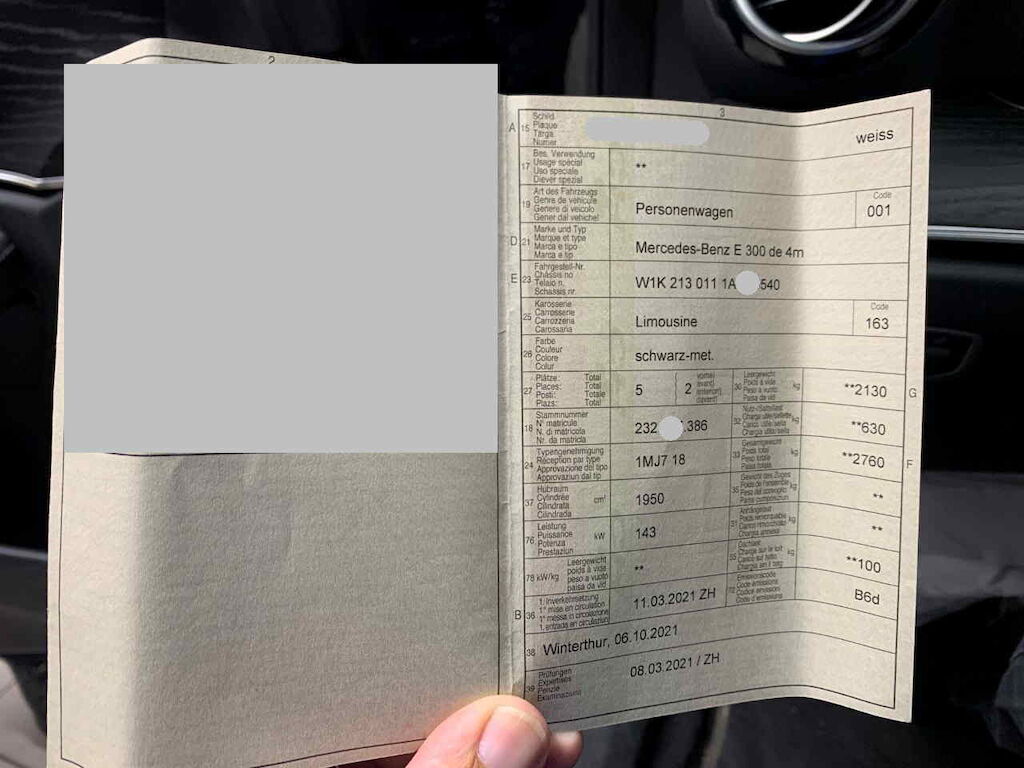 2
3
A 15 Schild
Plaque
Targa
Numer
weiss
17 Bes. Verwendung
Usage spécial
Uso speciale
Diever spezial
**
19 Art des Fahrzeugs
Genre de véhicule
Genere di veicolo
Gener dal vehichel
Personenwagen
Code
001
D 21 Marke und Typ
Marque et type
Marca e tipo
Marca e tip
Mercedes-Benz E 300 de 4m
E 23 Fahrgestell-Nr.
Châssis no
Telaio n.
Schassis nr.
W1K 213 011 1A 540
25 Karosserie
Carrosserie
Carrozzeria
Carossaria
Limousine
Code
163
26 Farbe
Couleur
Colore
Colur
schwarz-met.
27 Plätze: Total
Places: Total
Posti: Totale
Plazs: Total
5
2
vorne
avant
anteriori
davant
30 Leergewicht
Poids à vide
Peso a vuoto
Paisa da vid
kg
**2130
G
18 Stammnummer
N° matricule
N. di matricola
Nr. da matricla
232 .386
32 Nutz-/Sattellast
Charge utile/sellette
Carico utile/sella
Chargia utila/sella
kg
**630
24 Typengenehmigung
Réception par type
Approvazione del tipo
Approvaziun dal tip
1MJ7 18
33 Gesamtgewicht
Poids total
Peso totale
Paisa totala
kg
**2760
F
37 Hubraum
Cylindrée
Cilindrata
Cilindrada
cm³
1950
35 Gewicht des Zuges
Poids de l'ensemble
Peso del convoglio
Paisa cumposiziun
kg
**
76 Leistung
Puissance
Potenza
Prestaziun
kW
143
31 Anhängelast
Poids remorquable
Carico rimorchiato
Chargia annexa
kg
**
78 kW/kg
Leergewicht
poids à vide
peso a vuoto
paisa da vid
**
55 Dachlast
Charge sur le toit
Carico sul tetto
Chargia sin il tetg
kg
**100
B 36 1. Inverkehrsetzung
1re mise en circulation
1a messa in circolazione
1. entrada en circulaziun
11.03.2021 ZH
72 Emissionscode
Code émissions
Codice emissioni
Code d'emissiuns
B6d
38 Winterthur, 06.10.2021
39 Prüfungen
Expertises
Perizie
Examinaziuns
08.03.2021 / ZH